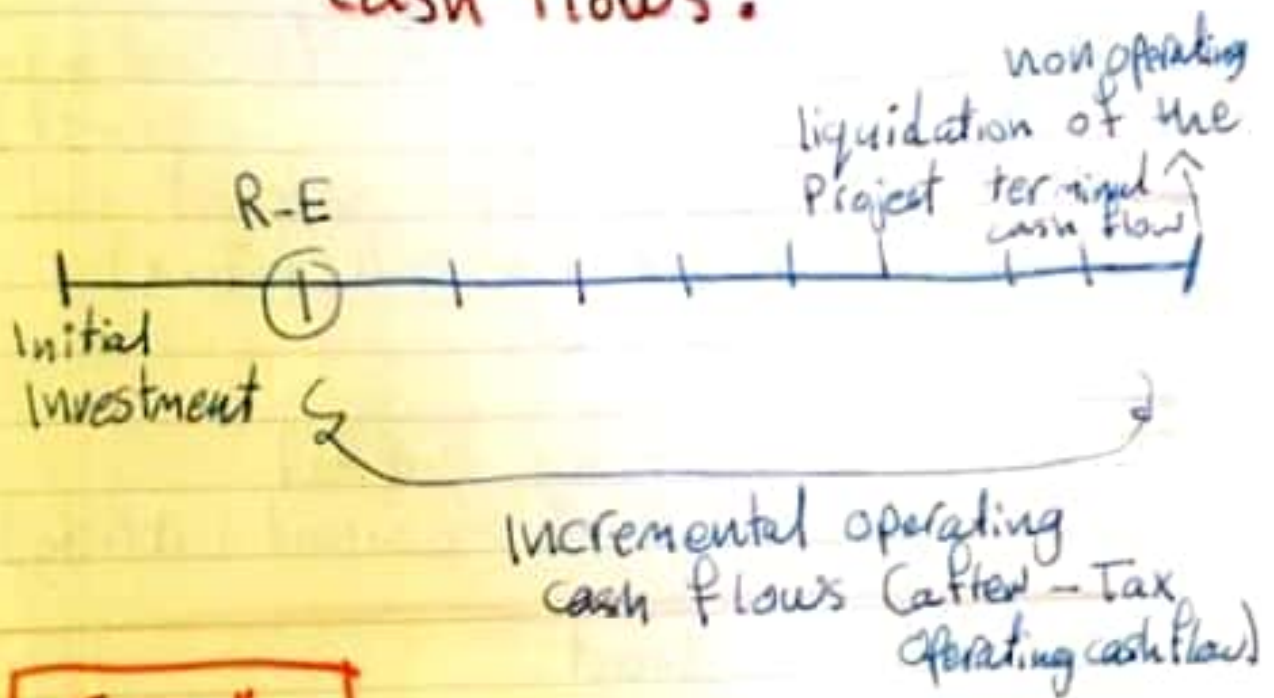 cash flows:
non operating
liquidation of the
Project terminal
cash flow
R-E
Initial
Investment
Incremental operating
cash flows (after - Tax
operating cash flow)